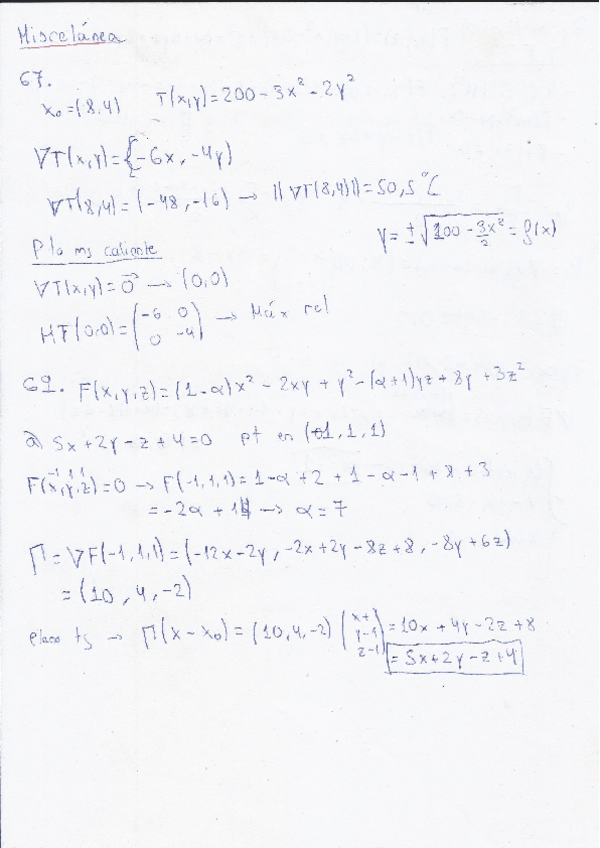 Miscelánea
67.
x₀=(8,4) T(x,y)=200-3x²-2y²
∇T(x,y)=(-6x, -4y)
∇T(8,4)=(-48,-16) → ||∇T(8,4)||=50,5°C
y=±√(100-3x²/2)=g(x)
Pto ms caliente
∇T(x,y)=0⃗ → (0,0)
HT(0,0)=(-6 0
0 -4) → Máx rel
69. F(x,y,z)=(1-α)x²-2xy+y²-(α+1)yz+8y+3z²
a) 5x+2y-z+4=0 pt en (-1,1,1)
-1 1 1
F(x,y,z)=0 → F(-1,1,1)=1-α+2+1-α-1+8+3
=-2α+14 → α=7
Π=∇F(-1,1,1)=(-12x-2y, -2x+2y-8z+8, -8y+6z)
=(10, 4, -2)
plano tg → Π(x-x₀)=(10,4,-2)(x+1
y-1
z-1)=10x+4y-2z+8
=5x+2y-z+4